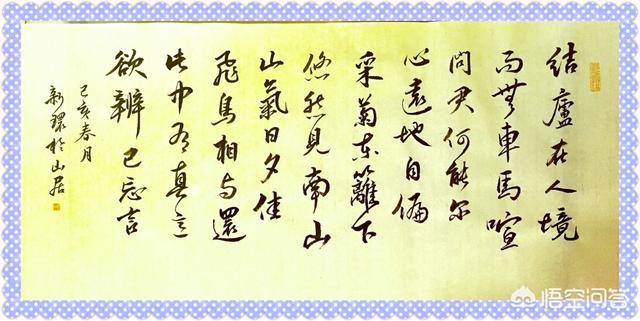 結廬在人境
而無車馬喧
問君何能尔
心遠地自偏
采菊东籬下
悠然見南山
山氣日夕佳
飛鳥相与還
此中有真意
欲辨已忘言
己亥春月
於山居
悟空问答